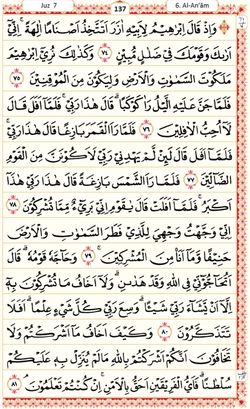 Juz 7
137
6. Al-An'âm
وَاِذْ قَالَ اِبْرٰهِيْمُ لِاَبِيْهِ اٰزَرَ اَتَتَّخِذُ اَصْنَامًا اٰلِهَةً ۚ اِنِّيْٓ
اَرٰىكَ وَقَوْمَكَ فِيْ ضَلٰلٍ مُّبِيْنٍ ٧٤ وَكَذٰلِكَ نُرِيْٓ اِبْرٰهِيْمَ
مَلَكُوْتَ السَّمٰوٰتِ وَالْاَرْضِ وَلِيَكُوْنَ مِنَ الْمُوْقِنِيْنَ ٧٥
فَلَمَّا جَنَّ عَلَيْهِ الَّيْلُ رَاٰ كَوْكَبًا ۗ قَالَ هٰذَا رَبِّيْ ۚ فَلَمَّآ اَفَلَ قَالَ
لَآ اُحِبُّ الْاٰفِلِيْنَ ٧٦ فَلَمَّا رَاَ الْقَمَرَ بَازِغًا قَالَ هٰذَا رَبِّيْ ۚ
فَلَمَّآ اَفَلَ قَالَ لَىِٕنْ لَّمْ يَهْدِنِيْ رَبِّيْ لَاَكُوْنَنَّ مِنَ الْقَوْمِ
الضَّاۤلِّيْنَ ٧٧ فَلَمَّا رَاَ الشَّمْسَ بَازِغَةً قَالَ هٰذَا رَبِّيْ هٰذَآ
اَكْبَرُ ۚ فَلَمَّآ اَفَلَتْ قَالَ يٰقَوْمِ اِنِّيْ بَرِيْۤءٌ مِّمَّا تُشْرِكُوْنَ ٧٨
اِنِّيْ وَجَّهْتُ وَجْهِيَ لِلَّذِيْ فَطَرَ السَّمٰوٰتِ وَالْاَرْضَ
حَنِيْفًا وَّمَآ اَنَا۠ مِنَ الْمُشْرِكِيْنَ ٧٩ وَحَاۤجَّهٗ قَوْمُهٗ ۗ قَالَ
اَتُحَاۤجُّوْۤنِّيْ فِى اللّٰهِ وَقَدْ هَدٰىنِ ۗ وَلَآ اَخَافُ مَا تُشْرِكُوْنَ بِهٖٓ
اِلَّآ اَنْ يَّشَاۤءَ رَبِّيْ شَيْـًٔا ۗ وَسِعَ رَبِّيْ كُلَّ شَيْءٍ عِلْمًا ۗ اَفَلَا
تَتَذَكَّرُوْنَ ٨٠ وَكَيْفَ اَخَافُ مَآ اَشْرَكْتُمْ وَلَا
تَخَافُوْنَ اَنَّكُمْ اَشْرَكْتُمْ بِاللّٰهِ مَا لَمْ يُنَزِّلْ بِهٖ عَلَيْكُمْ
سُلْطٰنًا ۗ فَاَيُّ الْفَرِيْقَيْنِ اَحَقُّ بِالْاَمْنِ ۚ اِنْ كُنْتُمْ تَعْلَمُوْنَ ۘ ٨١